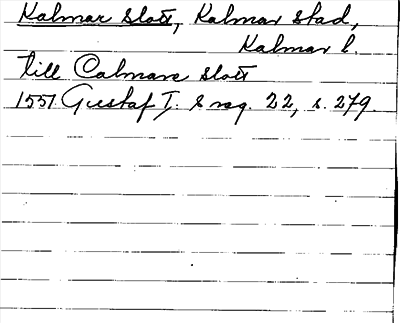 Kalmar slott, Kalmar stad,
Kalmar l.
till Calmare slott
1551 Gustaf I. s reg. 22, s. 279.